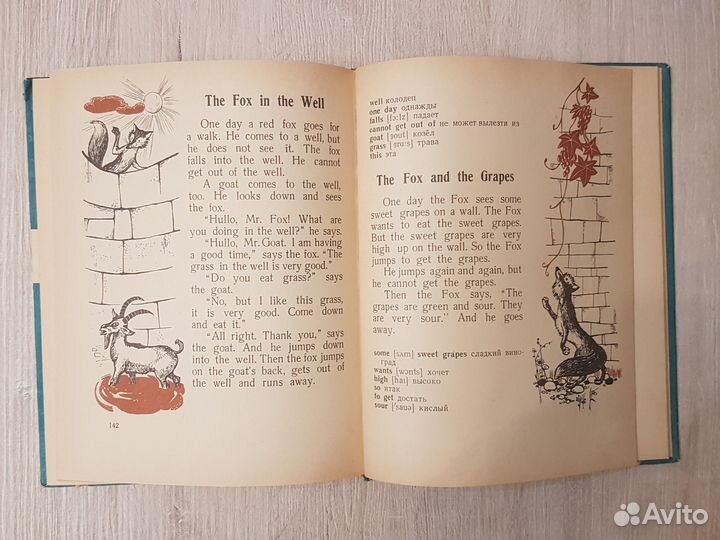 The Fox in the Well
One day a red fox goes for
a walk. He comes to a well, but
he does not see it. The fox
falls into the well. He cannot
get out of the well.
A goat comes to the well,
too. He looks down and sees
the fox.
“Hullo, Mr. Fox! What are
you doing in the well?” he says.
“Hullo, Mr. Goat. I am having
a good time,” says the fox. “The
grass in the well is very good.”
“Do you eat grass?” says
the goat.
“No, but I like this grass,
it is very good. Come down
and eat it.”
“All right. Thank you,” says
the goat. And he jumps down
into the well. Then the fox jumps
on the goat's back, gets out of
the well and runs away.
142
well колодец
one day однажды
falls [fɔ:lz] падает
cannot get out of не может вылезти из
goat [gout] козёл
grass [grɑ:s] трава
this эта
The Fox and the Grapes
One day the Fox sees some
sweet grapes on a wall. The Fox
wants to eat the sweet grapes.
But the sweet grapes are very
high up on the wall. So the Fox
jumps to get the grapes.
He jumps again and again, but
he cannot get the grapes.
Then the Fox says, “The
grapes are green and sour. They
are very sour.” And he goes
away.
some [sʌm] sweet grapes сладкий вино-
град
wants [wɔnts] хочет
high [haɪ] высоко
so итак
to get достать
sour ['sauə] кислый
Avito